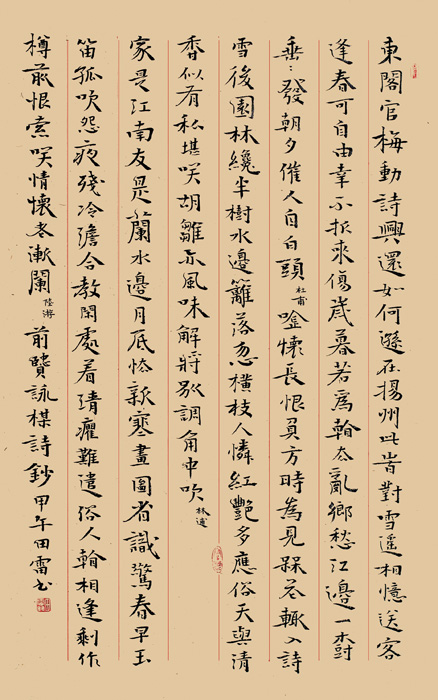 東閣官梅動詩興還如何遜在揚州此旹對雪遙相憶送客
逢春可自由幸不折來傷歲暮若為看去亂鄉愁江邊一樹
垂垂發朝夕催人自白頭杜甫唫懷長恨負芳時為見槑花輒入詩
雪後園林纔半樹水邊籬落忽橫枝人憐紅艷多應俗天與清
香似有私堪笑胡雛亦風味解將聲調角中吹林逋
家是江南友是蘭水邊月底怯新寒畫圖省識驚春早玉
笛孤吹怨夜殘冷澹合教閑處著清癯難遣俗人看相逢剩作
樽前恨索笑情懷老漸闌陸游前賢詠楳詩鈔甲午田雷書